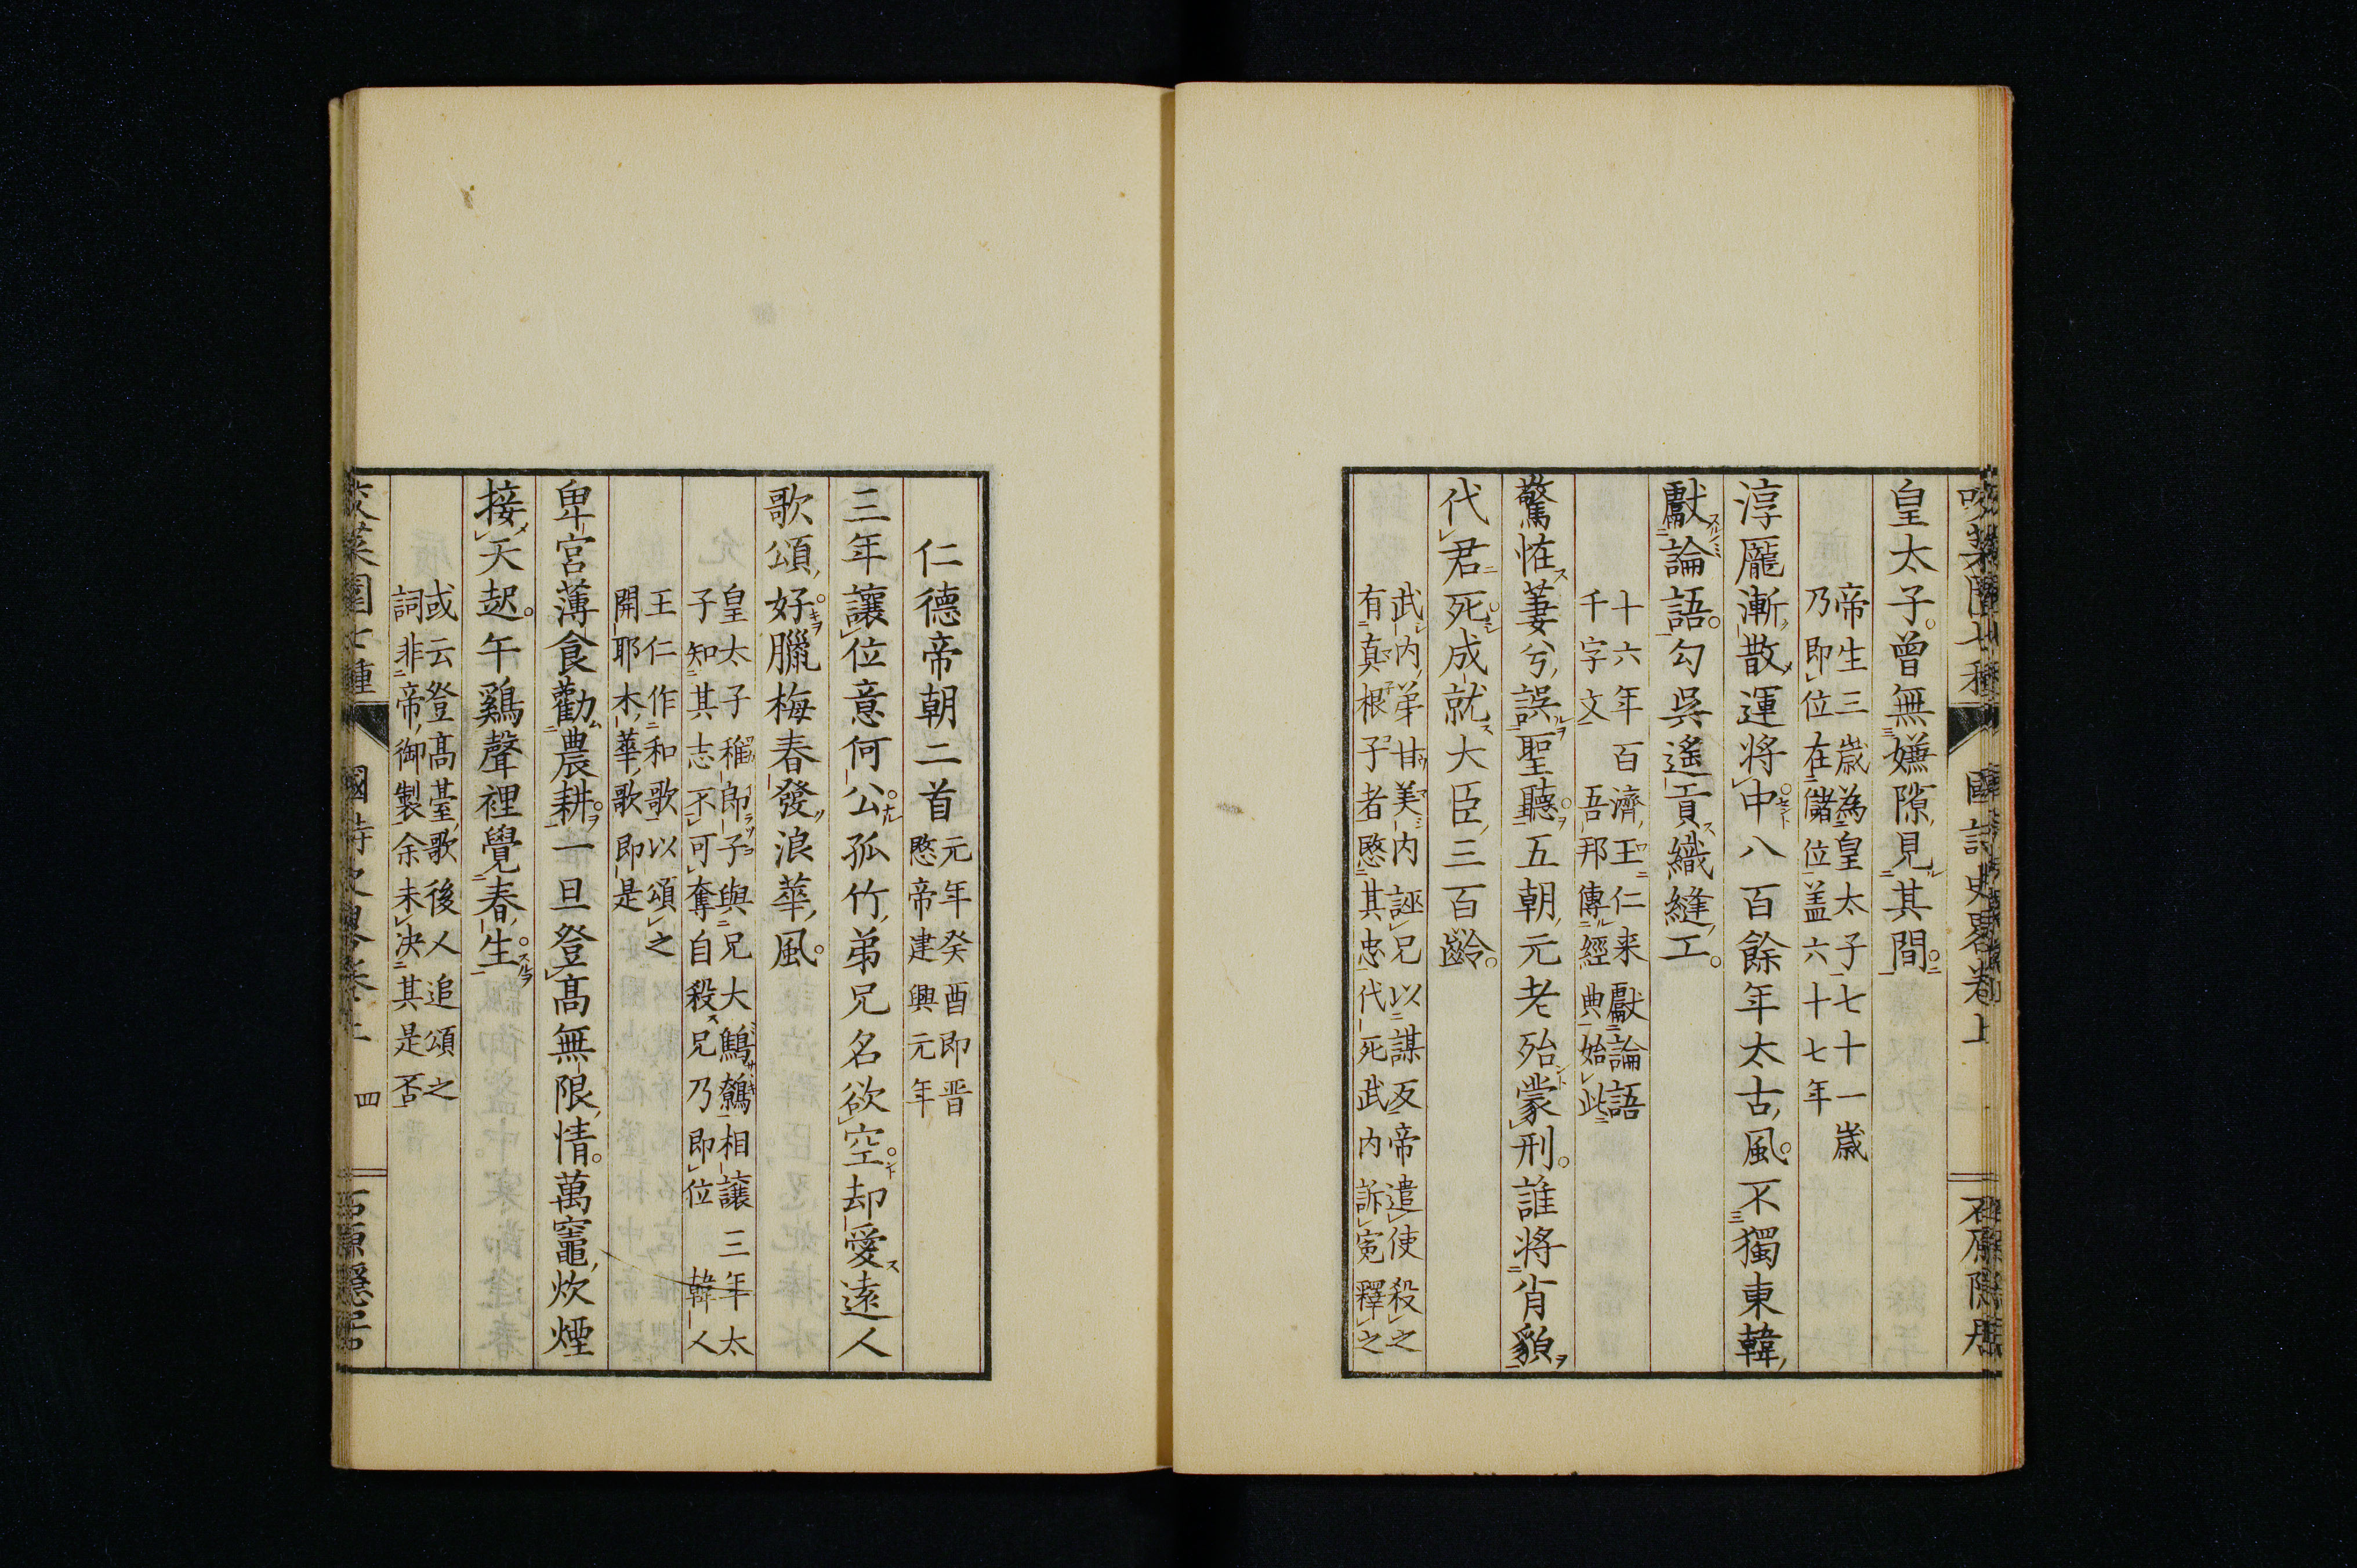 皇太子曾無嫌隙見其間
帝生三歳為皇太子七十一歳
乃即位在儲位盖六十七年
淳厖漸散運将中八百餘年太古風不獨東韓
獻論語勾吳遙貢織縫工
十六年百濟王仁来獻論語
千字文吾邦傳經典始此
驚恠萋兮誤聖聽五朝元老殆蒙刑誰将肖貌
代君死成就大臣三百齡
武内弟甘美内誣兄以謀反帝遣使殺之
有真根子者愍其忠代死武内訴寃釋之
仁德帝朝二首
元年癸酉即晋
愍帝建興元年
三年讓位意何公孤竹弟兄名欲空却愛遠人
歌頌好臘梅春發浪華風
皇太子稚郎子與兄大鷦鷯相譲三年太
子知其志不可奪自殺兄乃即位韓人
王仁作和歌以頌之
開耶木華歌即是
卑宮薄食勸農耕一旦登髙無限情萬竈炊煙
接天起午鷄聲裡覺春生
或云登髙臺歌後人追頌之
詞非帝御製余未决其是否
四